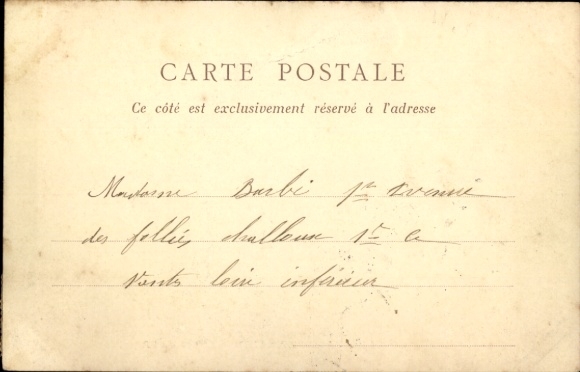 CARTE POSTALE
Ce côté est exclusivement réservé à l'adresse
Madame Barbi
des folliés challoux 1r
loire inférieur